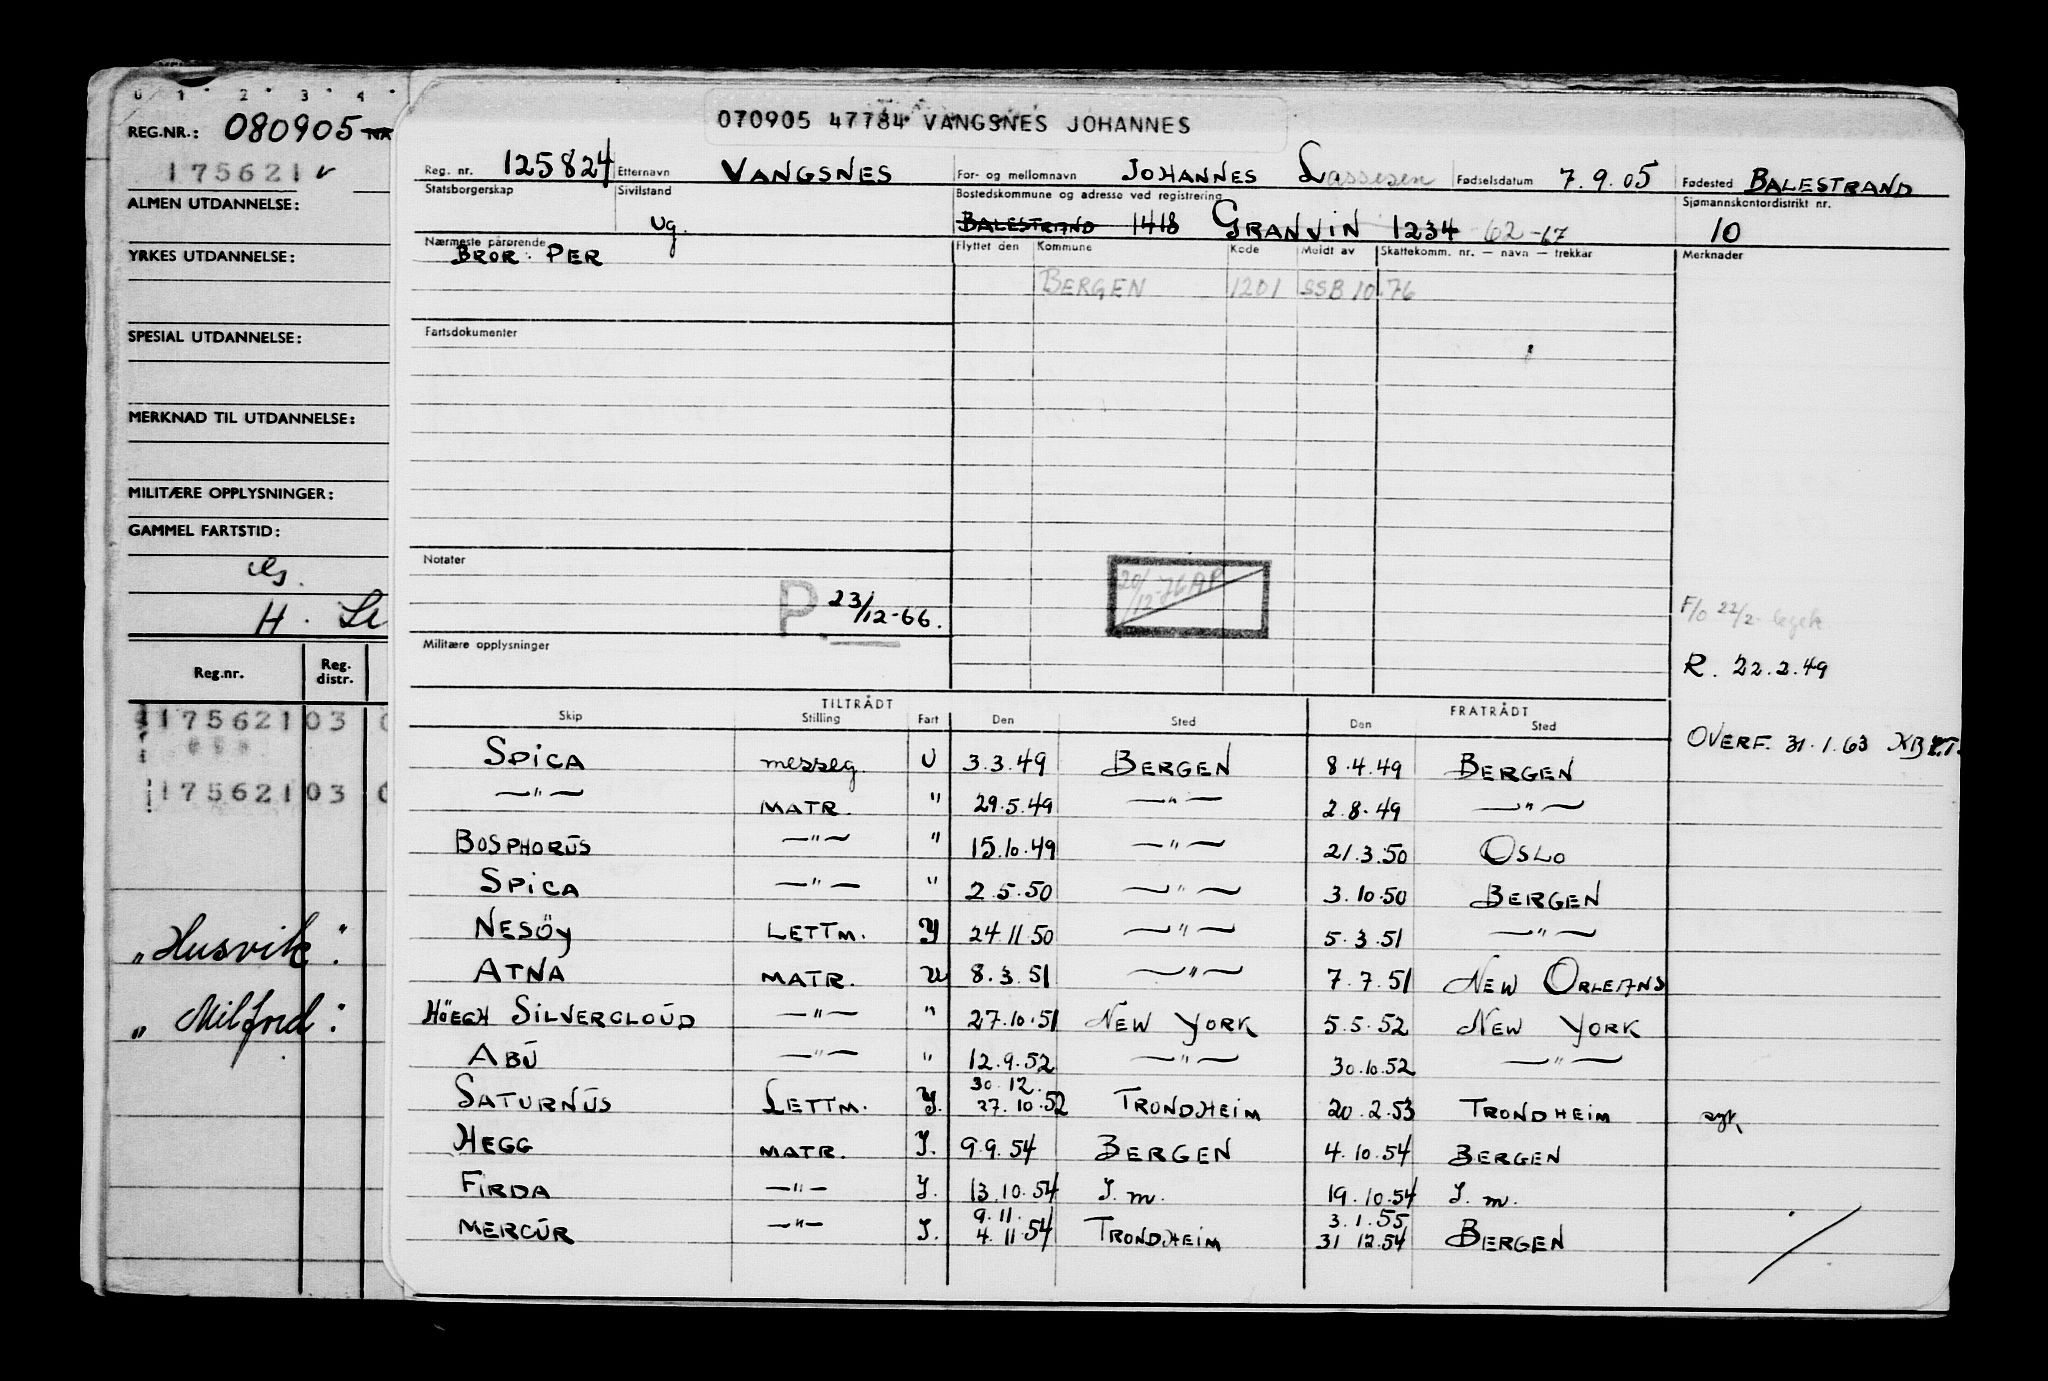 0 1 2 3 4
REG.NR.: 080905
175621 v
ALMEN UTDANNELSE:
YRKES UTDANNELSE:
SPESIAL UTDANNELSE:
MERKNAD TIL UTDANNELSE:
MILITÆRE OPPLYSNINGER:
GAMMEL FARTSTID:
H.
Reg.nr. Reg. distr.
175621 03
175621 03
„Husvik":
„Milford":
070905 47784 VANGSNES JOHANNES
Reg. nr. 125824 Etternavn VANGSNES For- og mellomnavn JOHANNES Lassesen Fødselsdatum 7.9.05 Fødested BALESTRAND
Statsborgerskap Sivilstand ug. Bostedskommune og adresse ved registrering Sjømannskontordistrikt nr.
BALESTRAND 1418 GRANVIN 1234 -62-67 10
Nærmeste pårørende Flyttet den Kommune Kode Meldt av Skattekomm. nr. — navn — trekkar Merknader
BROR: PER
BERGEN 1201 SSB 10-76
Fartsdokumenter
Notater
P 23/12-66.
20/12-76 AP
F/o 22/2-
Militære opplysninger
R. 22.2.49
TILTRÅDT FRATRÅDT
Skip Stilling Fart Den Sted Den Sted
OVERF. 31.1.63
SPICA messeg. U 3.3.49 BERGEN 8.4.49 BERGEN
—"— MATR. " 29.5.49 —"— 2.8.49 —"—
BOSPHORUS —"— " 15.10.49 —"— 21.3.50 OSLO
SPICA —"— " 2.5.50 —"— 3.10.50 BERGEN
NESÖY LETTM. I 24.11.50 —"— 5.3.51 —"—
ATNA MATR. U 8.3.51 —"— 7.7.51 NEW ORLEANS
HÖEGH SILVERCLOUD —"— " 27.10.51 NEW YORK 5.5.52 NEW YORK
ABU —"— " 12.9.52 —"— 30.10.52 —"—
30.12.
SATURNUS LETTM. I. 27.10.52 TRONDHEIM 20.2.53 TRONDHEIM
HEGG MATR. I. 9.9.54 BERGEN 4.10.54 BERGEN
FIRDA —"— I. 13.10.54 I.m. 19.10.54 I.m.
9.11. 3.1.55
MERCUR —"— I. 4.11.54 TRONDHEIM 31.12.54 BERGEN